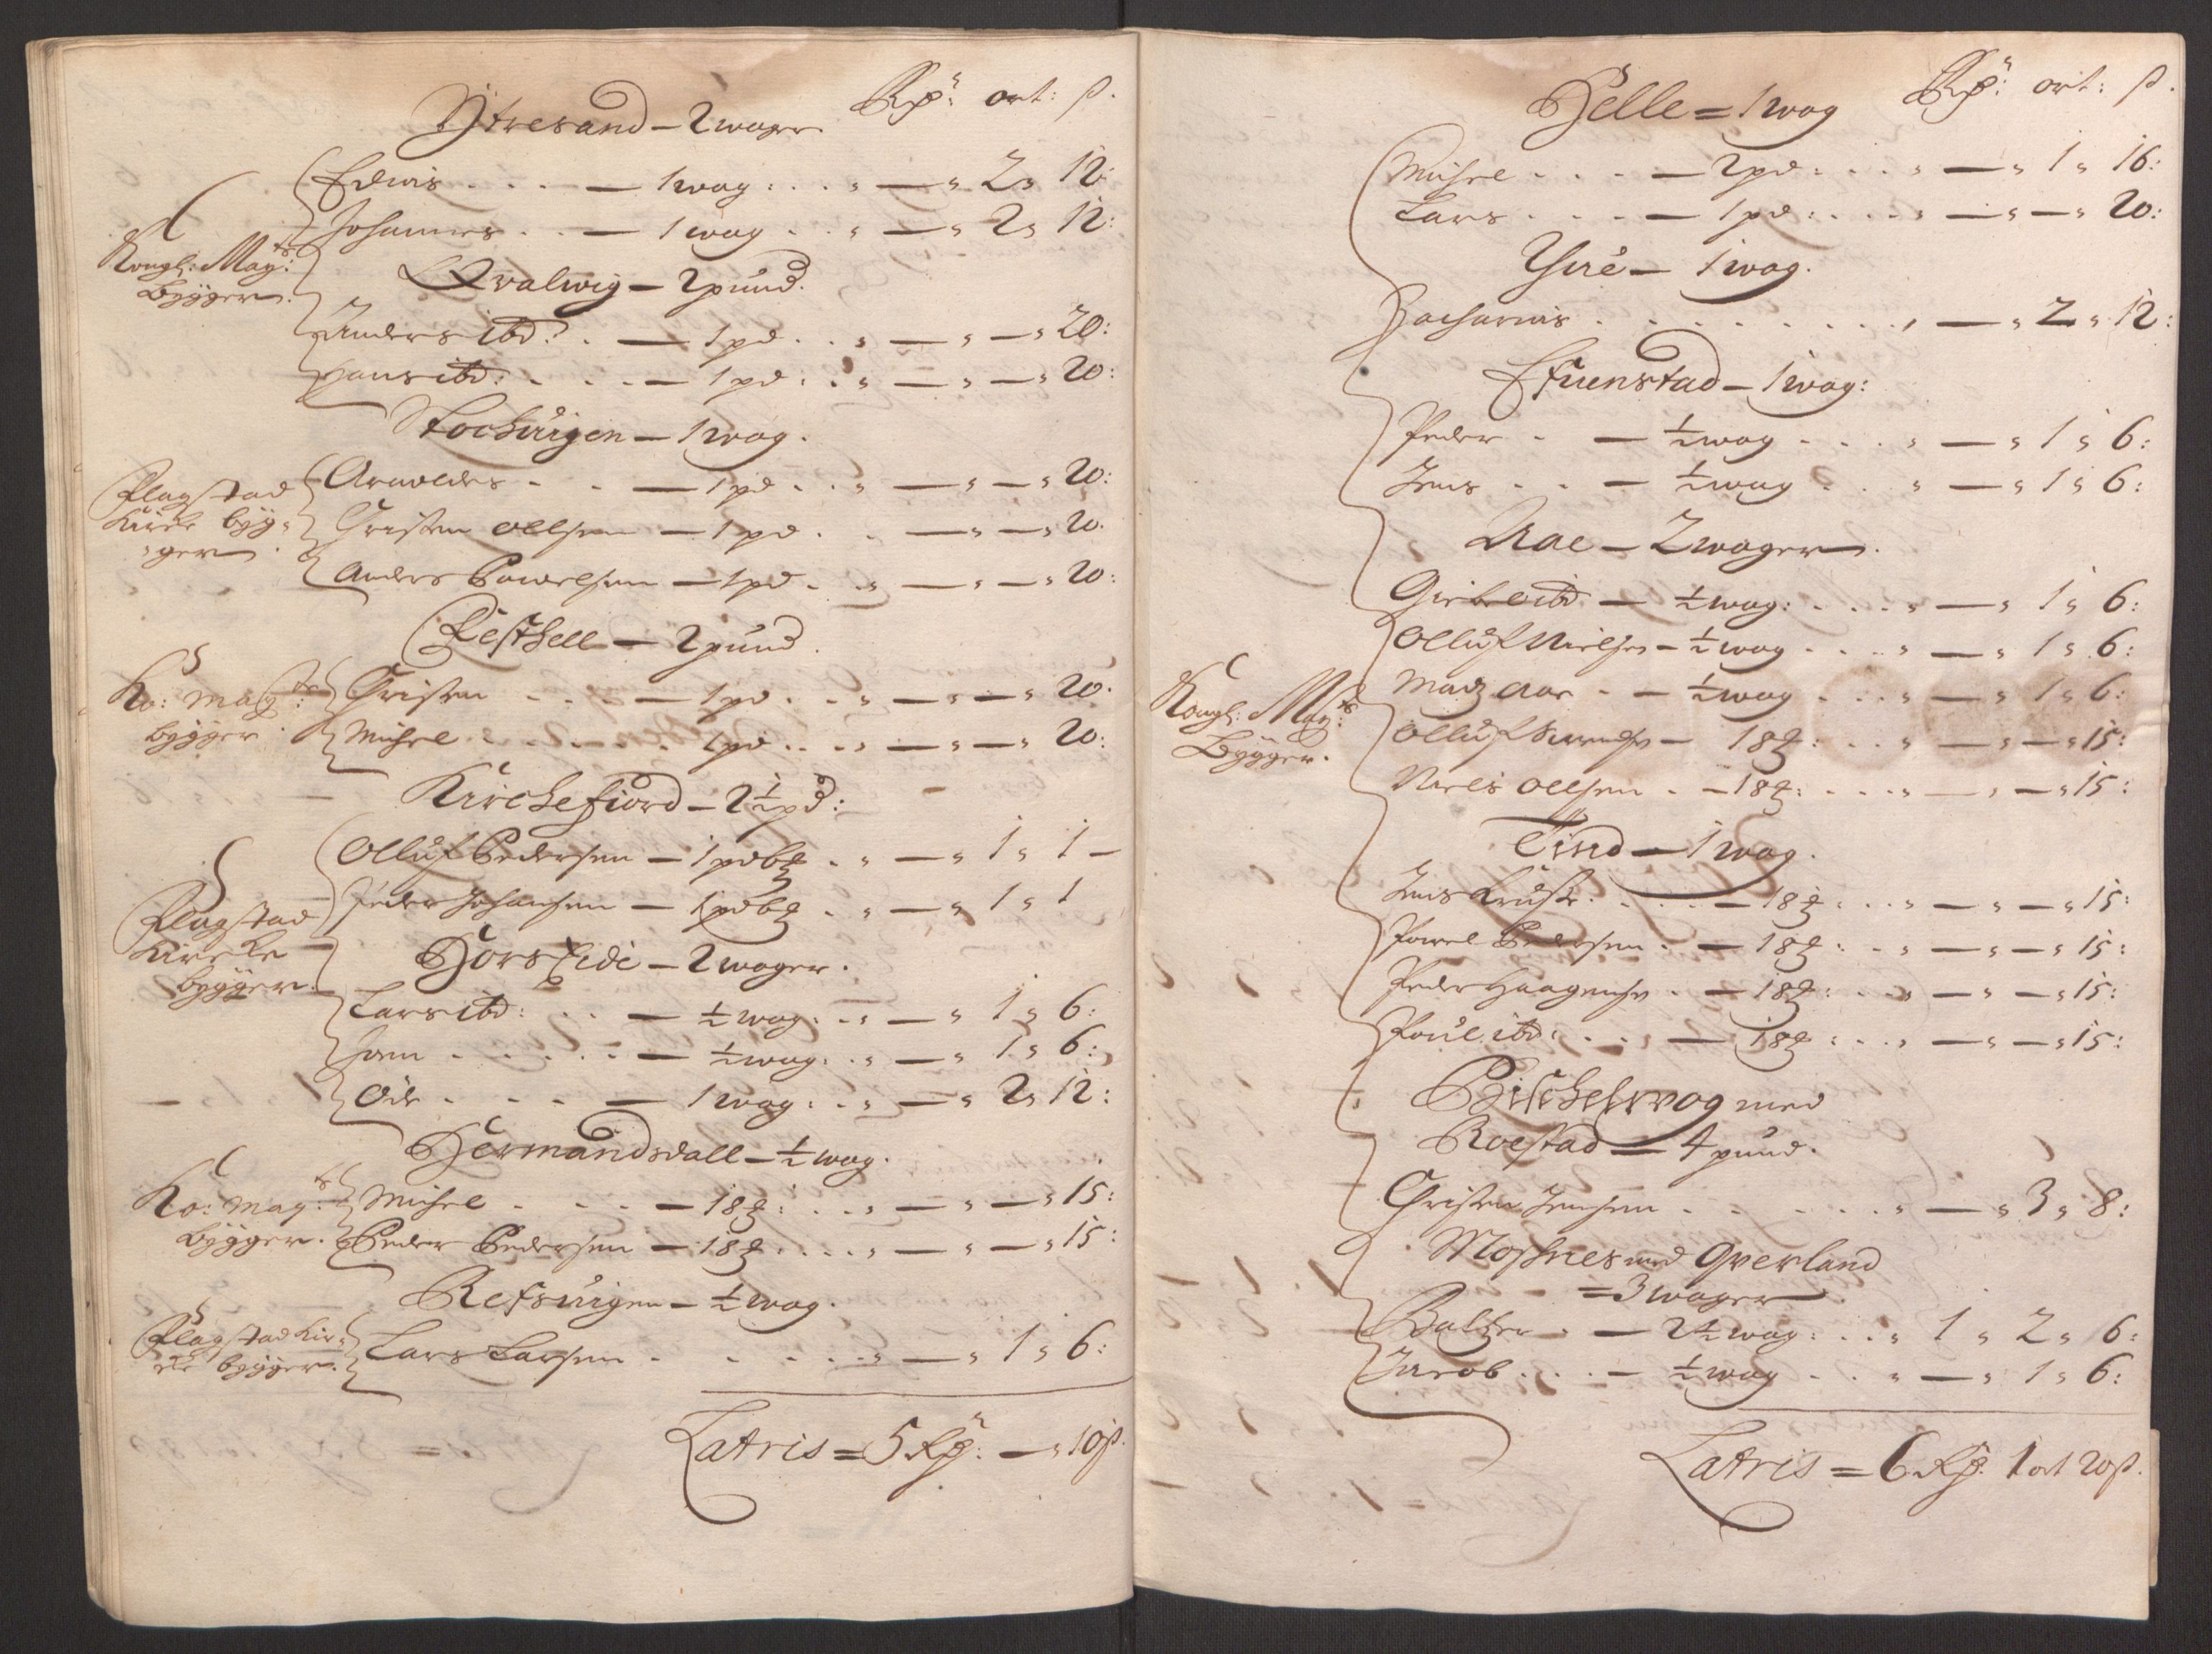 Ytresand - 2 wager. Rdr: ort: ß.
Edvis . . . - 1 wag : . . „ - „ 2 „ 12:
Johannes . . - 1 wag . . „ - „ 2 „ 12:
Kongl: May:ts
bygger.
Qvalwig - 2 pund.
Anders ibd: . - 1 pd . . „ - „ - „ 20:
Hans ibd: . . . - 1 pd : . „ - „ - „ 20:
Stochuigen - 1 wag.
Flagstad
Kircke byg-
ger.
. . - 1 pd . . „ - „ - „ 20:
Cristen Ollsen - 1 pd . . - „ - „ 20.
Anders Powelsen - 1 pd . . „ - „ - „ 20:
Festhell - 2 pund.
Ko: May:ts
bygger
Cristen . . . - 1 pd . . „ - „ - „ 20.
Michel . . . . . 1 pd . . „ - „ - „ 20:
Kirchefiord - 2½ pd:
Olluf Pedersen - 1 pd 6 . „ - „ 1 „ 1 -
Peder Johansen - 1 pd 6 . „ - „ 1 „ 1
Flagstad
Kircke
bygger.
Horseide - 2 wager.
Lars ibd: . . - ½ wag . . „ - „ 1 „ 6:
. . . . . - ½ wag . . „ - „ 1 „ 6:
Ode . . . - 1 wag : . „ - „ 2 „ 12:
Hermandsdall - ½ wag.
Ko: May:ts
bygger.
Michel . . . - 18 : . . „ - „ - „ 15:
Peder Pedersen - 18 . . . „ - „ - „ 15:
Refsuigen - ½ wag.
Flagstad Kir-
cke bygger.
Lars Larsen . . . . . „ - „ 1 „ 6:
Latris = 5 Rdr: - „ 10 ß.
Helle = 1 wag Rdr: ort: ß.
Michel . . . - 2 pd : . . „ - „ 1 „ 16:
Lars . . . - 1 pd : . . . „ - „ - „ 20:
Ytre - 1 wag.
Zacharias . . . . . . . . „ - „ 2 „ 12:
Efuenstad - 1 wag:
Peder . - ½ wag . . . „ - „ 1 „ 6:
Jens . . - ½ wag . . „ - „ 1 „ 6:
Aae - 2 wager.
ibd - ½ wag: . . . „ - „ 1 „ 6:
Olluf Nielsen - ½ wag . . . „ - „ 1 „ 6:
Madz Aae . - ½ wag . . . „ - „ 1 „ 6:
Kongl: May:ts
Bygger.
Olluf - 18 : . . „ - „ - „ 15:
Niels Ollsen . - 18 : . . . „ - „ - „ 15:
Tind - 1 wag.
Jens . . . - 18 : . . „ - „ - „ 15:
Powel Pedersen . - 18 : . . „ - „ - „ 15:
Peder Haagensen . - 18 : . . „ - „ - „ 15:
Poul ibd: . . . - 18 : . . . „ - „ - „ 15:
Bischelswog med
Roestad - 4 pund.
Christen Jensen . . . . . „ - „ 3 „ 8:
Moschnes med Qverland
= 3 wager
Baltzer . - 2½ wag: . . „ 1 „ 2 „ 6:
Jacob . . . - ½ wag . . „ - „ 1 „ 6:
Latris = 6 Rdr: 1 ort 20 ß.